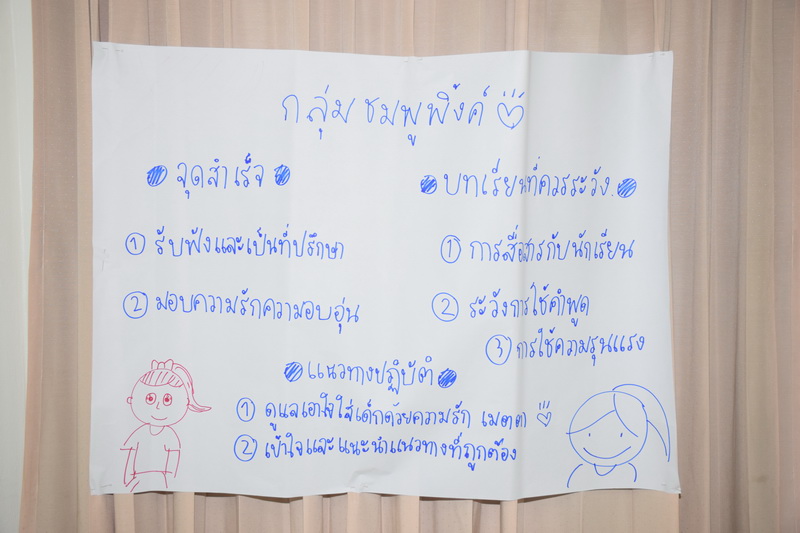 กลุ่ม ชมพูพิ้งค์
จุดสำเร็จ
① รับฟังและเป็นที่ปรึกษา
② มอบความรักความอบอุ่น
บทเรียนที่ควรระวัง.
① การสื่อสารกับนักเรียน
② ระวังการใช้คำพูด
③ การใช้ความรุนแรง
แนวทางปฏิบัติ
① ดูแลเอาใจใส่เด็กด้วยความรัก เมตตา
② เข้าใจและแนะนำแนวทางที่ถูกต้อง